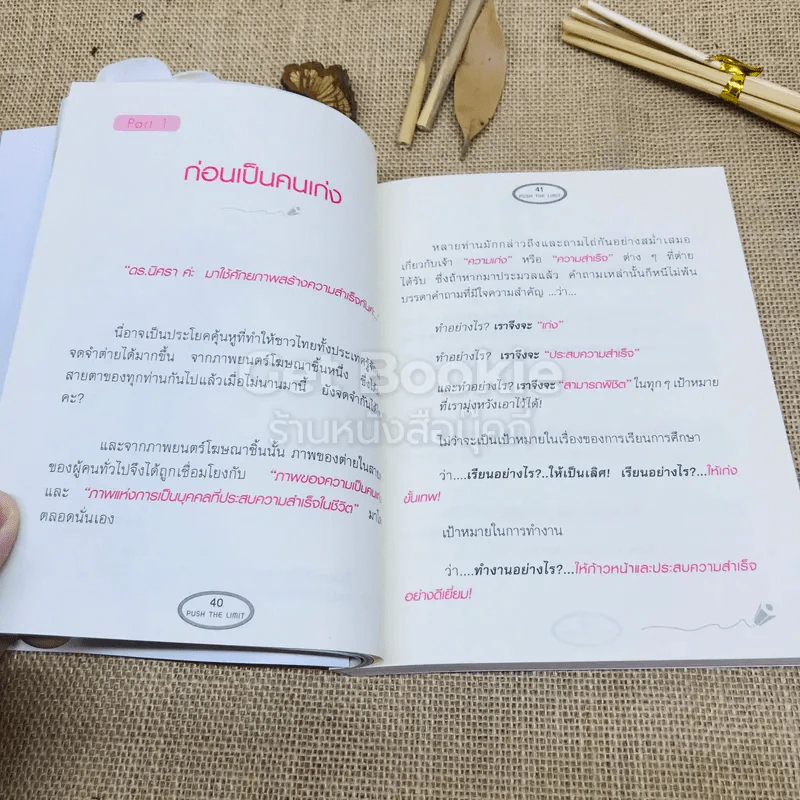 Part 1
ก่อนเป็นคนเก่ง
"ดร.นิศรา ค่ะ มาใช้ศักยภาพสร้างความสำเร็จกันค่ะ..."
นี่อาจเป็นประโยคคุ้นหูที่ทำให้ชาวไทยทั้งประเทศรู้จัก
จดจำต่ายได้มากขึ้น จากภาพยนตร์โฆษณาชิ้นหนึ่ง ซึ่ง
สายตาของทุกท่านกันไปแล้วเมื่อไม่นานมานี้ ยังจดจำกันได้
คะ?
และจากภาพยนตร์โฆษณาชิ้นนั้น ภาพของต่ายใน
ของผู้คนทั่วไปจึงได้ถูกเชื่อมโยงกับ "ภาพของความเป็นคนเก่ง
และ "ภาพแห่งการเป็นบุคคลที่ประสบความสำเร็จในชีวิต" มา
ตลอดนั่นเอง
40
PUSH THE LIMIT
41
PUSH THE LIMIT
หลายท่านมักกล่าวถึงและถามไถ่กันอย่างสม่ำเสมอ
เกี่ยวกับเจ้า "ความเก่ง" หรือ "ความสำเร็จ" ต่าง ๆ ที่ต่าย
ได้รับ ซึ่งถ้าหากมาประมวลแล้ว คำถามเหล่านั้นก็หนีไม่พ้น
บรรดาคำถามที่มีใจความสำคัญ ...ว่า...
ทำอย่างไร? เราจึงจะ "เก่ง"
ทำอย่างไร? เราจึงจะ "ประสบความสำเร็จ"
และทำอย่างไร? เราจึงจะ "สามารถพิชิต" ในทุก ๆ เป้าหมาย
ที่เรามุ่งหวังเอาไว้ได้!
ไม่ว่าจะเป็นเป้าหมายในเรื่องของการเรียนการศึกษา
ว่า....เรียนอย่างไร?..ให้เป็นเลิศ! เรียนอย่างไร?...ให้เก่ง
ขั้นเทพ!
เป้าหมายในการทำงาน
ว่า....ทำงานอย่างไร?...ให้ก้าวหน้าและประสบความสำเร็จ
อย่างดีเยี่ยม!
Get Bookie
ร้านหนังสือบุ๊คกี้